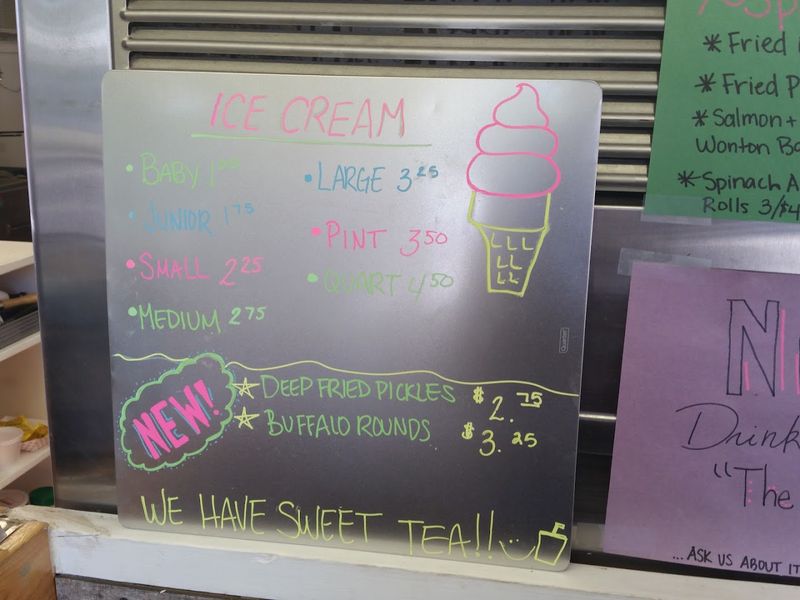 ICE CREAM
• BABY
• JUNIOR 1 75
• SMALL 2 25
• MEDIUM 2 75
• LARGE 3 25
• PINT 3 50
• QUART 4 50
NEW!
☆ DEEP FRIED PICKLES $2.75
☆ BUFFALO ROUNDS $3.25
WE HAVE SWEET TEA!!
Quartet
* Fried
* Fried P
* Salmon +
Wonton Ba
* Spinach A
Rolls 3/$4
N
Drink
"The
...ASK US ABOUT IT